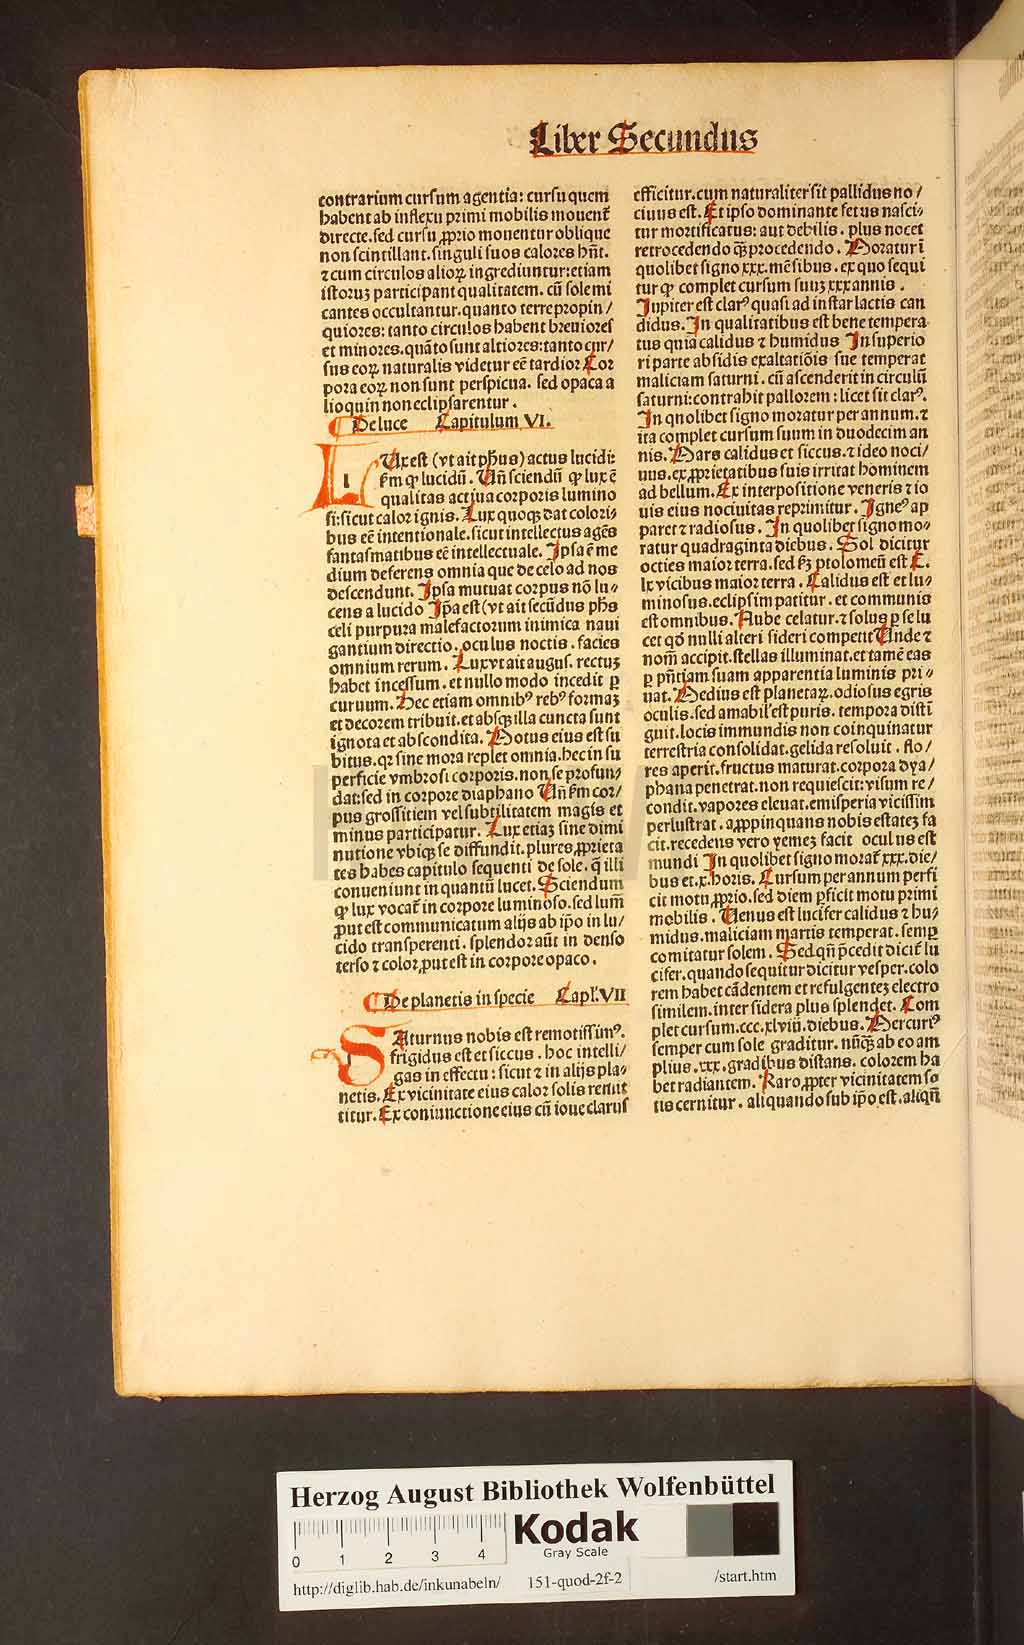 Liber Secundus
contrarium cursum agentia: cursu quem
habent ab inflexu primi mobilis mouent᷑
directe. sed cursu ꝓprio mouentur oblique
non scintillant. singuli suos calores hn̄t.
⁊ cum circulos alioꝝ ingrediuntur: etiam
istoruꝫ participant qualitatem. cū sole mi
cantes occultantur. quanto terre propin/
quiores: tanto circulos habent breuiores
et minores. quāto sunt altiores: tanto cur/
sus eoꝝ naturalis videtur eē tardior Cor
pora eoꝝ non sunt perspicua. sed opaca a
lioquin non eclipsarentur.
De luce Capitulum VI.
LUx est (vt ait ph̄us) actus lucidi:
ẜm ꝙ lucidū. Un̄ sciendū ꝙ lux ē
qualitas actiua corporis lumino
si: sicut calor ignis. Lux quoqꝫ dat colori⸗
bus eē intentionale. sicut intellectus agēs
fantasmatibus eē intellectuale. Ipsa ē me
dium deferens omnia que de celo ad nos
descendunt. Ipsa mutuat corpus nō lu⸗
cens a lucido Ip̄a est (vt ait secūdus ph̄s
celi purpura malefactorum inimica naui
gantium directio. oculus noctis. facies
omnium rerum. Lux vt ait augus. rectuꝫ
habet incessum. et nullo modo incedit ꝑ
curuum. Hec etiam omnibꝰ rebꝰ formaꝫ
et decorem tribuit. et absqꝫ illa cuncta sunt
ignota et abscondita. Motus eius est su
bitus. qꝛ sine mora replet omnia. hec in su
perficie vmbrosi corporis. non se profun⸗
dat: sed in corpore diaphano Un̄ ẜm cor/
pus grossitiem vel subtilitatem magis et
minus participatur. Lux etiaꝫ sine dimi
nutione vbiqꝫ se diffundit. plures ꝓprieta
tes habes capitulo sequenti de sole. q̄ illi
conueniunt in quantū lucet. Sciendum
ꝙ lux vocat᷑ in corpore luminoso. sed lum̄
ꝓut est communicatum alijs ab ip̄o in lu/
cido transperenti. splendor aūt in denso
terso ⁊ color ꝓut est in corpore opaco.
De planetis in specie Capl'. VII
SAturnus nobis est remotissimꝰ.
frigidus est et siccus. hoc intelli/
gas in effectu: sicut ⁊ in alijs pla⸗
netis. Ex vicinitate eius calor solis remit
titur. Ex coniunctione eius cū ioue clarus
efficitur. cum naturaliter sit pallidus no/
ciuus est. Et ipso dominante fetus nasci⸗
tur mortificatus: aut debilis. plus nocet
retrocedendo qꝫ procedendo. Moratur ī
quolibet signo xxx. mēsibus. ex quo sequi
tur ꝙ complet cursum suuꝫ xxx annis.
Jupiter est clarꝰ quasi ad instar lactis can
didus. In qualitatibus est bene tempera
tus quia calidus ⁊ humidus In superio
ri parte absidis exaltatiōis sue temperat
maliciam saturni. cū ascenderit in circulū
saturni: contrahit pallorem: licet sit clarꝰ.
In quolibet signo moratur per annum. ⁊
ita complet cursum suum in duodecim an
nis. Mars calidus et siccus. ⁊ ideo noci/
uus. ex ꝓprietatibus suis irritat hominem
ad bellum. Ex interpositione veneris ⁊ io
uis eius nociuitas reprimitur. Igneꝰ ap
paret ⁊ radiosus. In quolibet signo mo⸗
ratur quadraginta diebus. Sol dicitur
octies maior terra. sed ẜꝫ ptolomeū est C.
lx vicibus maior terra. Calidus est et lu⸗
minosus. eclipsim patitur. et communis
est omnibus. Nube celatur. ⁊ solus ꝑ se lu
cet qd̄ nulli alteri sideri competit Unde ⁊
nom̄ accipit. stellas illuminat. et tamē eas
ꝑ pn̄tiam suam apparentia luminis pri⸗
uat. Medius est planetaꝝ. odiosus egris
oculis. sed amabil' est puris. tempora distī
guit. locis immundis non coinquinatur
terrestria consolidat. gelida resoluit. flo/
res aperit. fructus maturat. corpora dya/
phana penetrat. non requiescit: visum re/
condit. vapores eleuat. emisperia vicissim
perlustrat. aꝓpinquans nobis estateꝫ fa
cit. recedens vero yemeꝫ facit oculus est
mundi In quolibet signo morat᷑ xxx. die/
bus et. x. horis. Cursum per annum perfi
cit motu ꝓprio. sed diem ꝑficit motu primi
mobilis. Uenus est lucifer calidus ⁊ hu⸗
midus. maliciam martis temperat. semꝑ
comitatur solem. Sed qn̄ p̄cedit dicit᷑ lu
cifer. quando sequitur dicitur vesper. colo
rem habet cādentem et refulgenteꝫ electro
similem. inter sidera plus splendet. Com
plet cursum. ccc. xlviij. diebus. Mercuriꝰ
semper cum sole graditur. nūqꝫ ab eo am
plius. xxx. gradibus distans. colorem ha
bet radiantem. Raro ꝓpter vicinitatem so
lis cernitur. aliquando sub ip̄o est. aliqn̄
Herzog August Bibliothek Wolfenbüttel
0 1 2 3 4
Kodak
Gray Scale
http://diglib.hab.de/inkunabeln/ 151-quod-2f-2 /start.htm